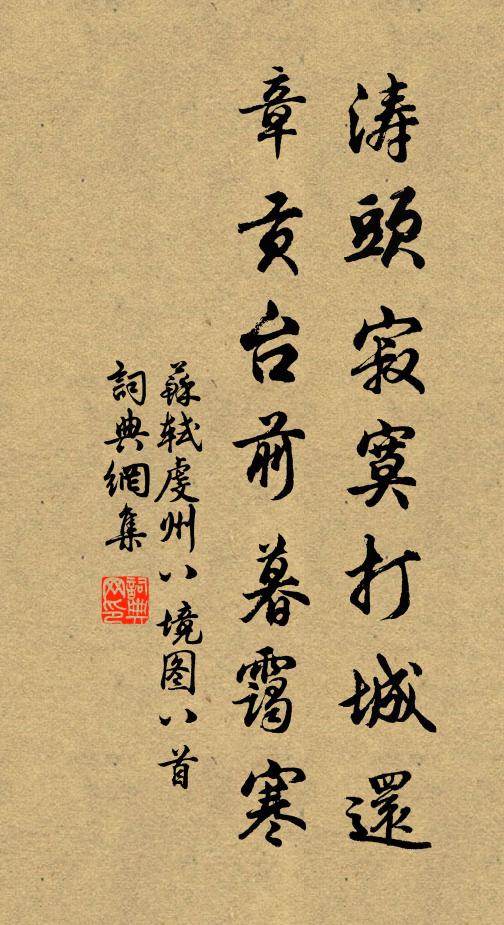 涛頭寂寞打城還
章贡台前暮靄寒
蘇轼虔州八境图八首
詞典網集
詞典网印